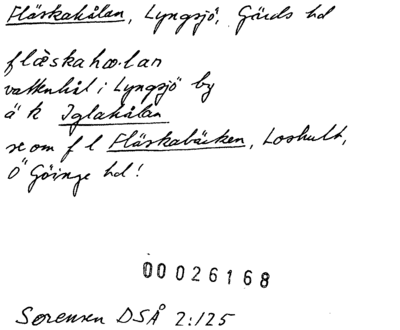 Fläskahålan, Lyngsjö, Gärds hd
flàskahɷ.lan
vattenhål i Lyngsjö by
ä k Iglahålan
se om f l Fläskabäcken, Loshult,
Ö Göinge hd!
00026168
Sørensen DSÅ 2:125